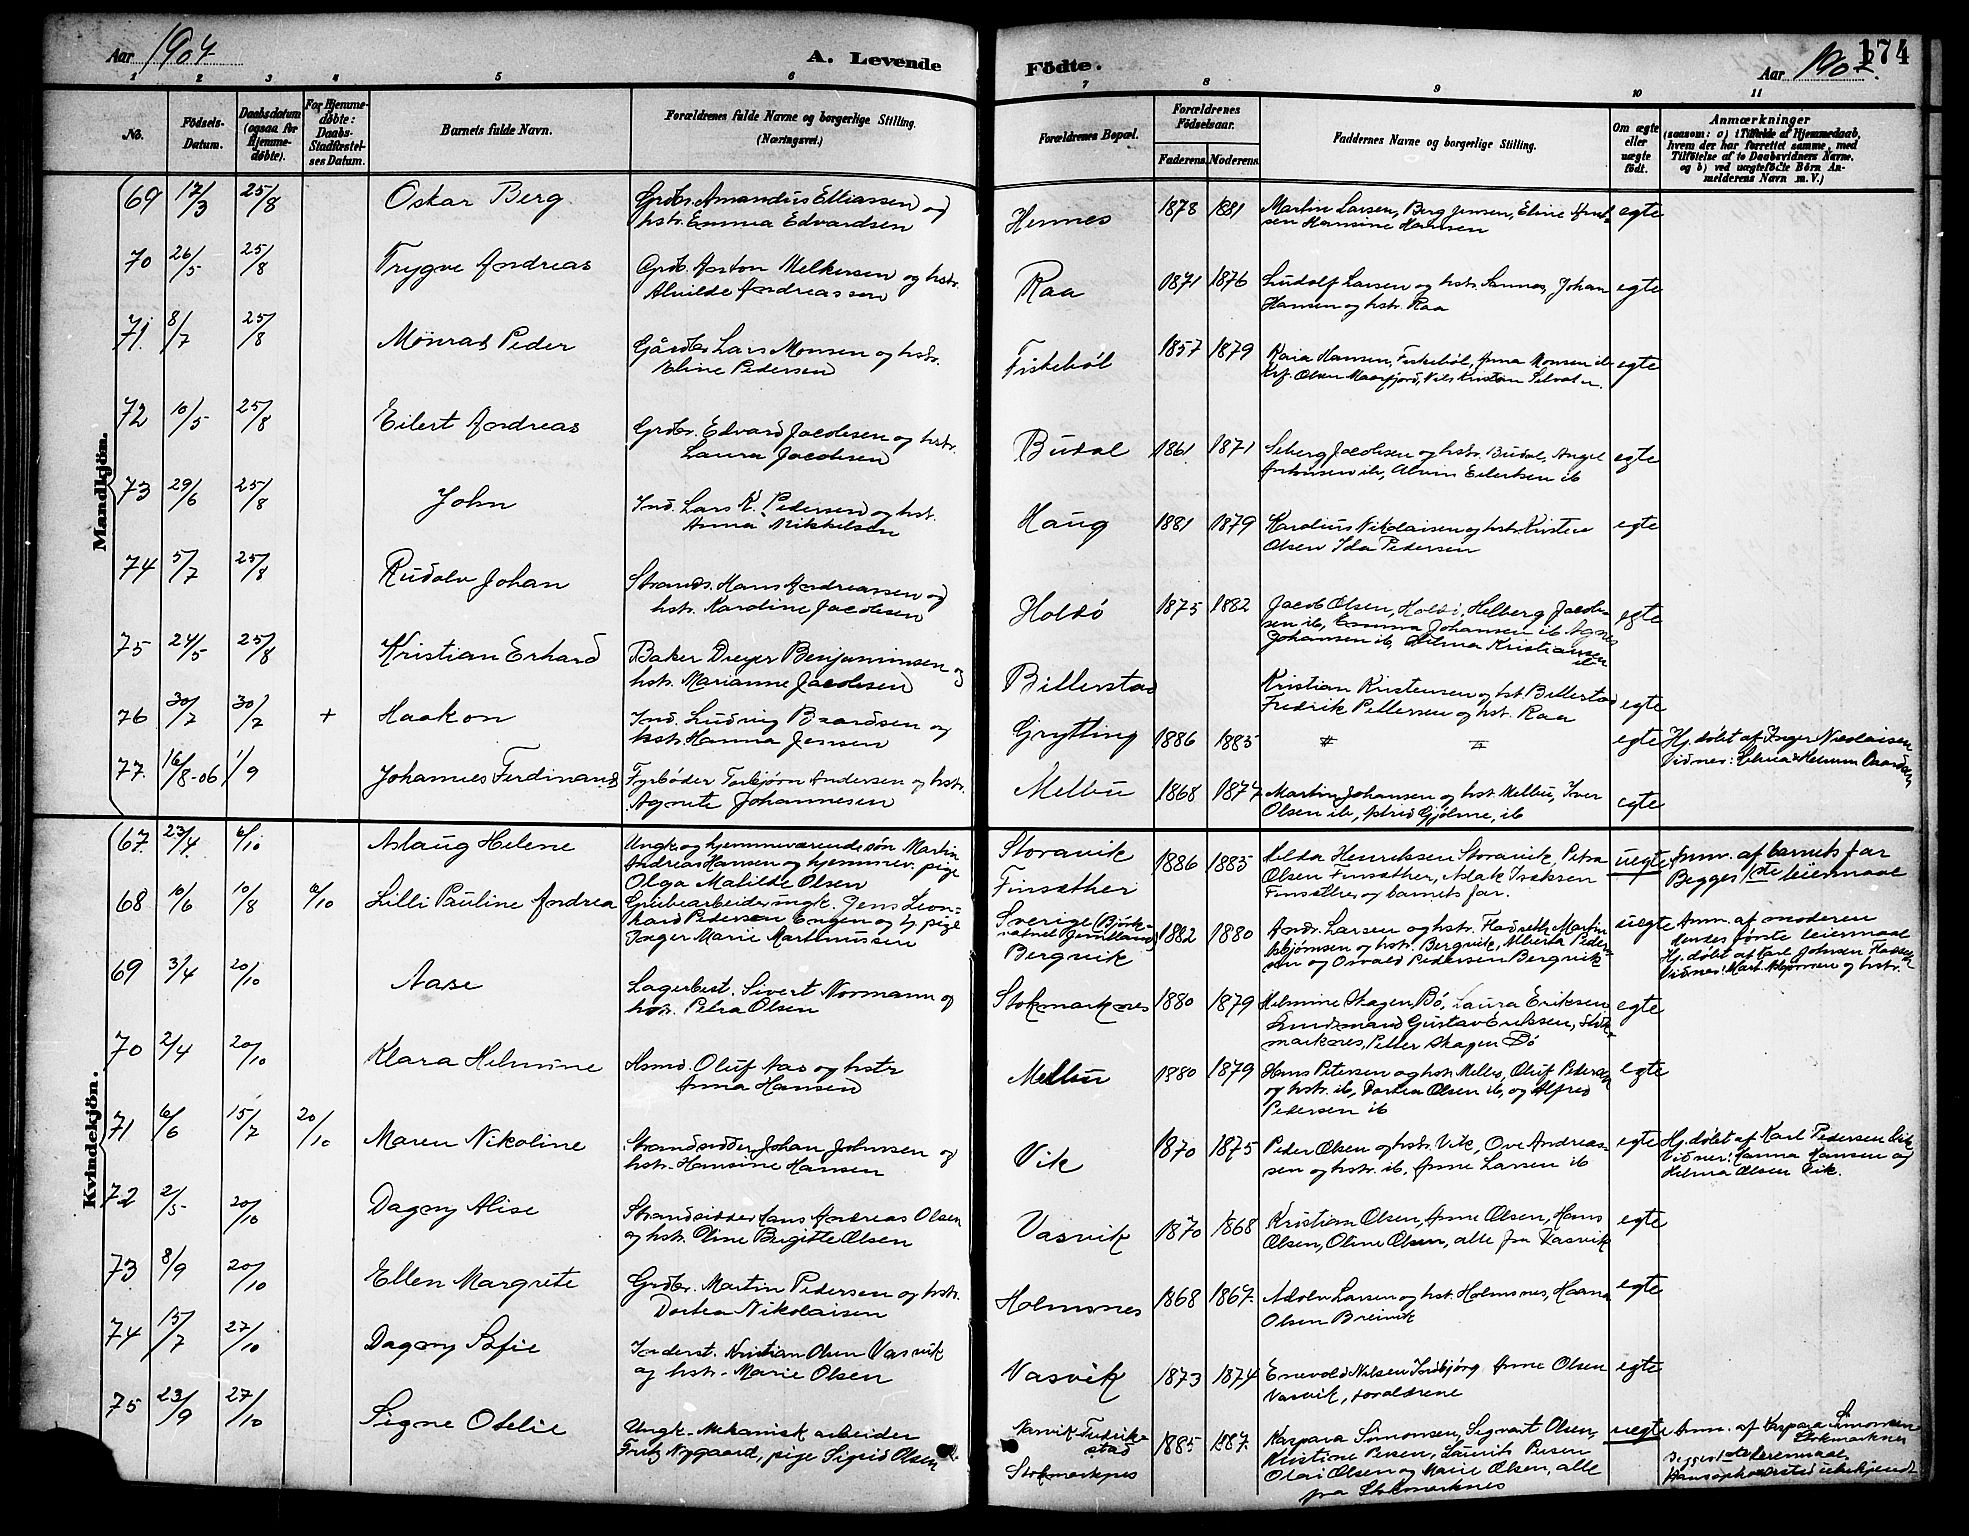 Aar 1907
A. Levende
Födte.
Aar 190
174
1 2 3 4 5 6 7 8 9 10 11
No.
Födsels-Datum.
Daabsdatum (ogsaa for Hjemme-døbte).
For Hjemme-døbte: Daabs-Stadfæstel-ses Datum.
Barnets fulde Navn.
Forældrenes fulde Navne og borgerlige Stilling.
(Næringsvei.)
Forældrenes Bopæl.
Forældrenes Födselsaar.
Faderens. Moderens.
Faddernes Navne og borgerlige Stilling.
Om ægte eller uægte født.
Anmærkninger
(saasom: a) i Tilfælde af Hjemmedaab, hvem der har forrettet samme, med Tilföielse af to Daabsvidners Navne. og b) ved uægtefödte Börn An-melderens Navn m. V.)
Mandkjön.
69 17/3 25/8 Oskar Berg Grdbr. Amandus Elliassen og Hennes 1878 1881 Martin Larsen, Berg Jensen, Eline egte
hstr. Emma Edvardsen sen Hansine Hansen
70 26/5 25/8 Trygve Andreas Grdb. Anton Melkersen og hstr. Raa 1871 1876 Ludolf Larsen og hstr. Sannes, Johan egte
Alvilde Andreassen Hansen og hstr. Raa
71. 8/7 25/8 Monrad Peder Gårdbr Lars Monsen og hstr. Fiskebøl 1857 1879 Kaia Hansen, Fiskebøl, Anna Monsen ib egte
Eline Pedersen Olsen Maarfjord, Nils Kristian
72 10/5 25/8 Eilert Andreas Grdbr. Edvard Jacobsen og hstr. Budal 1861 1871 Seberg Jacobsen og hstr. Budal, Angel egte
Laura Jacobsen Antonsen ib, Alvin Eilertsen ib
73 29/6 25/8 John Ind. Lars K. Pedersen og hst. Haug 1881 1879 Karolius Nikolaisen og hstr. Kristen egte
Anna Mikkelsen Olsen Ida Pedersen
74 5/7 25/8 Rudolv Johan Strands. Hans Andreassen og Holdö 1875 1882 Jacob Olsen, Holdö, Helberg Jacob- egte
hstr. Karoline Jacobsen sen ib, Emma Johansen ib Agnes
Johansen ib, Kristiansen ib
75 24/5 25/8 Kristian Erhard Baker Dreyer Benjaminsen og Billerstad Kristian Kristensen og hst. Billerstad egte
hstr. Marianne Jacobsen Fredrik Pettersen og hst. Raa
76 30/7 30/7 + Haakon Ind. Ludvig Baardsen og Grytting 1886 1885 egte Hj. døbt af Inger Nicolaisen
hstr. Hanna Jensen Vidner:
77. 16/8-06 1/9 Johannes Ferdinand Fyrbøder Torbjørn Andersen og hstr. Melbu 1868 1877 Martin Johansen og hst. Melbu, Iver egte
Agnete Johannesen Olsen ib, Astrid Gjølme, ib
Kvindekjön.
67. 23/4. 6/10 Aslaug Helene Ungk. og hjemmeværende søn Martin Storavik 1886 1885 Hilda Henriksen Storavik, Petra uegte Anm. af barnets far
Andreas Hansen og hjemmev. pige Finsæther Olsen Finsæther, Aslak Isaksen Begges 1ste leiermaal
Olga Matilde Olsen Finsæther og barnets far.
68 10/6 10/8 6/10 Lilli Pauline Andrea Grubearbeider, ungk. Jens Leon- Sverige (Björk- 1882 1880 Andr. Larsen og hstr. Martin uegte Anm. af moderen
hard Pedersen Engen og h. pige Jemtland) Asbjørnsen og hstr. Bergvik, Alberta Peder- dendes første leiermaal
Inger Marie Martinussen Bergvik sen og Osvald Pedersen Bergvik Hj. døbt af Carl Johnsen
Vidner: Mart. Asbjørnsen og hstr.
69 3/4 20/10 Aase Lagerbest. Sivert Normann og Stokmarknes 1880 1879 Helmine Skagen Bö, Laura Eriksen egte
hstr. Petra Olsen Gustav Eriksen, Stok-
marknes, Petter Skagen Bö
70 2/4 20/10 Klara Helmine Hsmd. Oluf Aas og hstr Melbu 1880 1879 Hans Petersen og hstr. Melbo, Oluf Pedersen egte
Anna Hansen og hstr. ib, Dortea Olsen ib, og Alfred
Pedersen ib
71 6/6 15/7 20/10 Maren Nikoline Strandsidder Johan Johnsen og Vik 1870 1875 Peder Olsen og hstr. Vik, Ove Andreas- egte Hj. døbt af Karl Pedersen Vik
hstr. Hansine Hansen sen og hstr. ib, Anne Larsen ib Vidner: Hanna Hansen og
Helma Olsen Vik.
72 2/5 20/10 Dagny Alise Strandsidder Hans Andreas Olsen Vasvik 1870 1868 Kristian Olsen, Anne Olsen, Hans egte
og hstr. Oline Birgitte Olsen Olsen, Oline Olsen, alle fra Vasvik
73 8/9 20/10 Ellen Margrete Grdbr. Martin Pedersen og hstr. Holmsnes 1868 1867. Adolv Larsen og hst. Holmsnes, Hanna egte
Dortea Nikolaisen Olsen Breivik
74 15/7 27/10 Dagny Sofie Inderst. Kristian Olsen Vasvik Vasvik 1873 1874 Enevold Nilsen Anne Olsen egte
og hstr. Marie Olsen Vasvik, foraldrene
75 23/9 27/10 Signe Otelie Ungk. Mekanisk arbeider Narvik Fredrik- 1885 1887. Kaspara Simonsen, Sigvart Olsen, uegte Anm. af Kaspara Simonsen
Fritz Nygaard, pige Sigrid Olsen stad Kristine Olsen, Laurits Stokmarknes
Stokmarknes Olai Olsen og Marie Olsen, alle Begges 1ste leiermaal
fra Stokmarknes Hans opholdssted ubekjendt